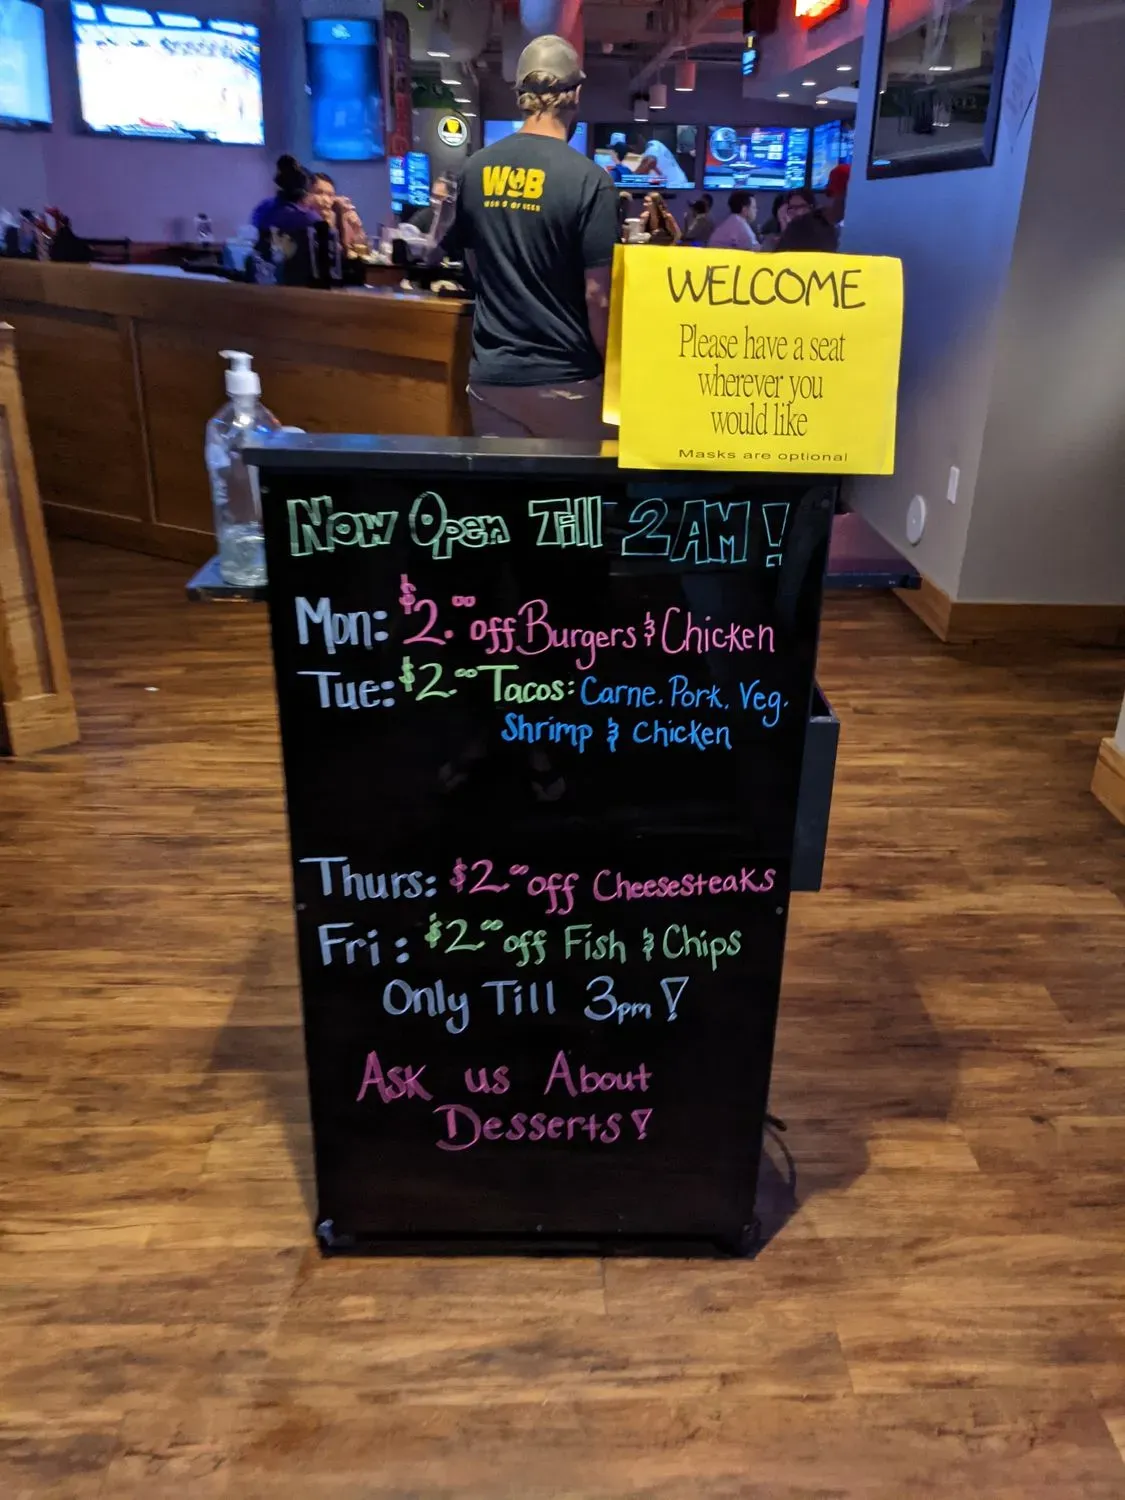 WOB
WORLD OF BEER
WELCOME
Please have a seat
wherever you
would like
Masks are optional
Now Open Till 2AM!
Mon: $2.00 off Burgers & Chicken
Tue: $2.00 Tacos: Carne, Pork, Veg.
Shrimp & Chicken
Thurs: $2.00 off Cheesesteaks
Fri: $2.00 off Fish & Chips
Only Till 3pm!
Ask us About
Desserts!